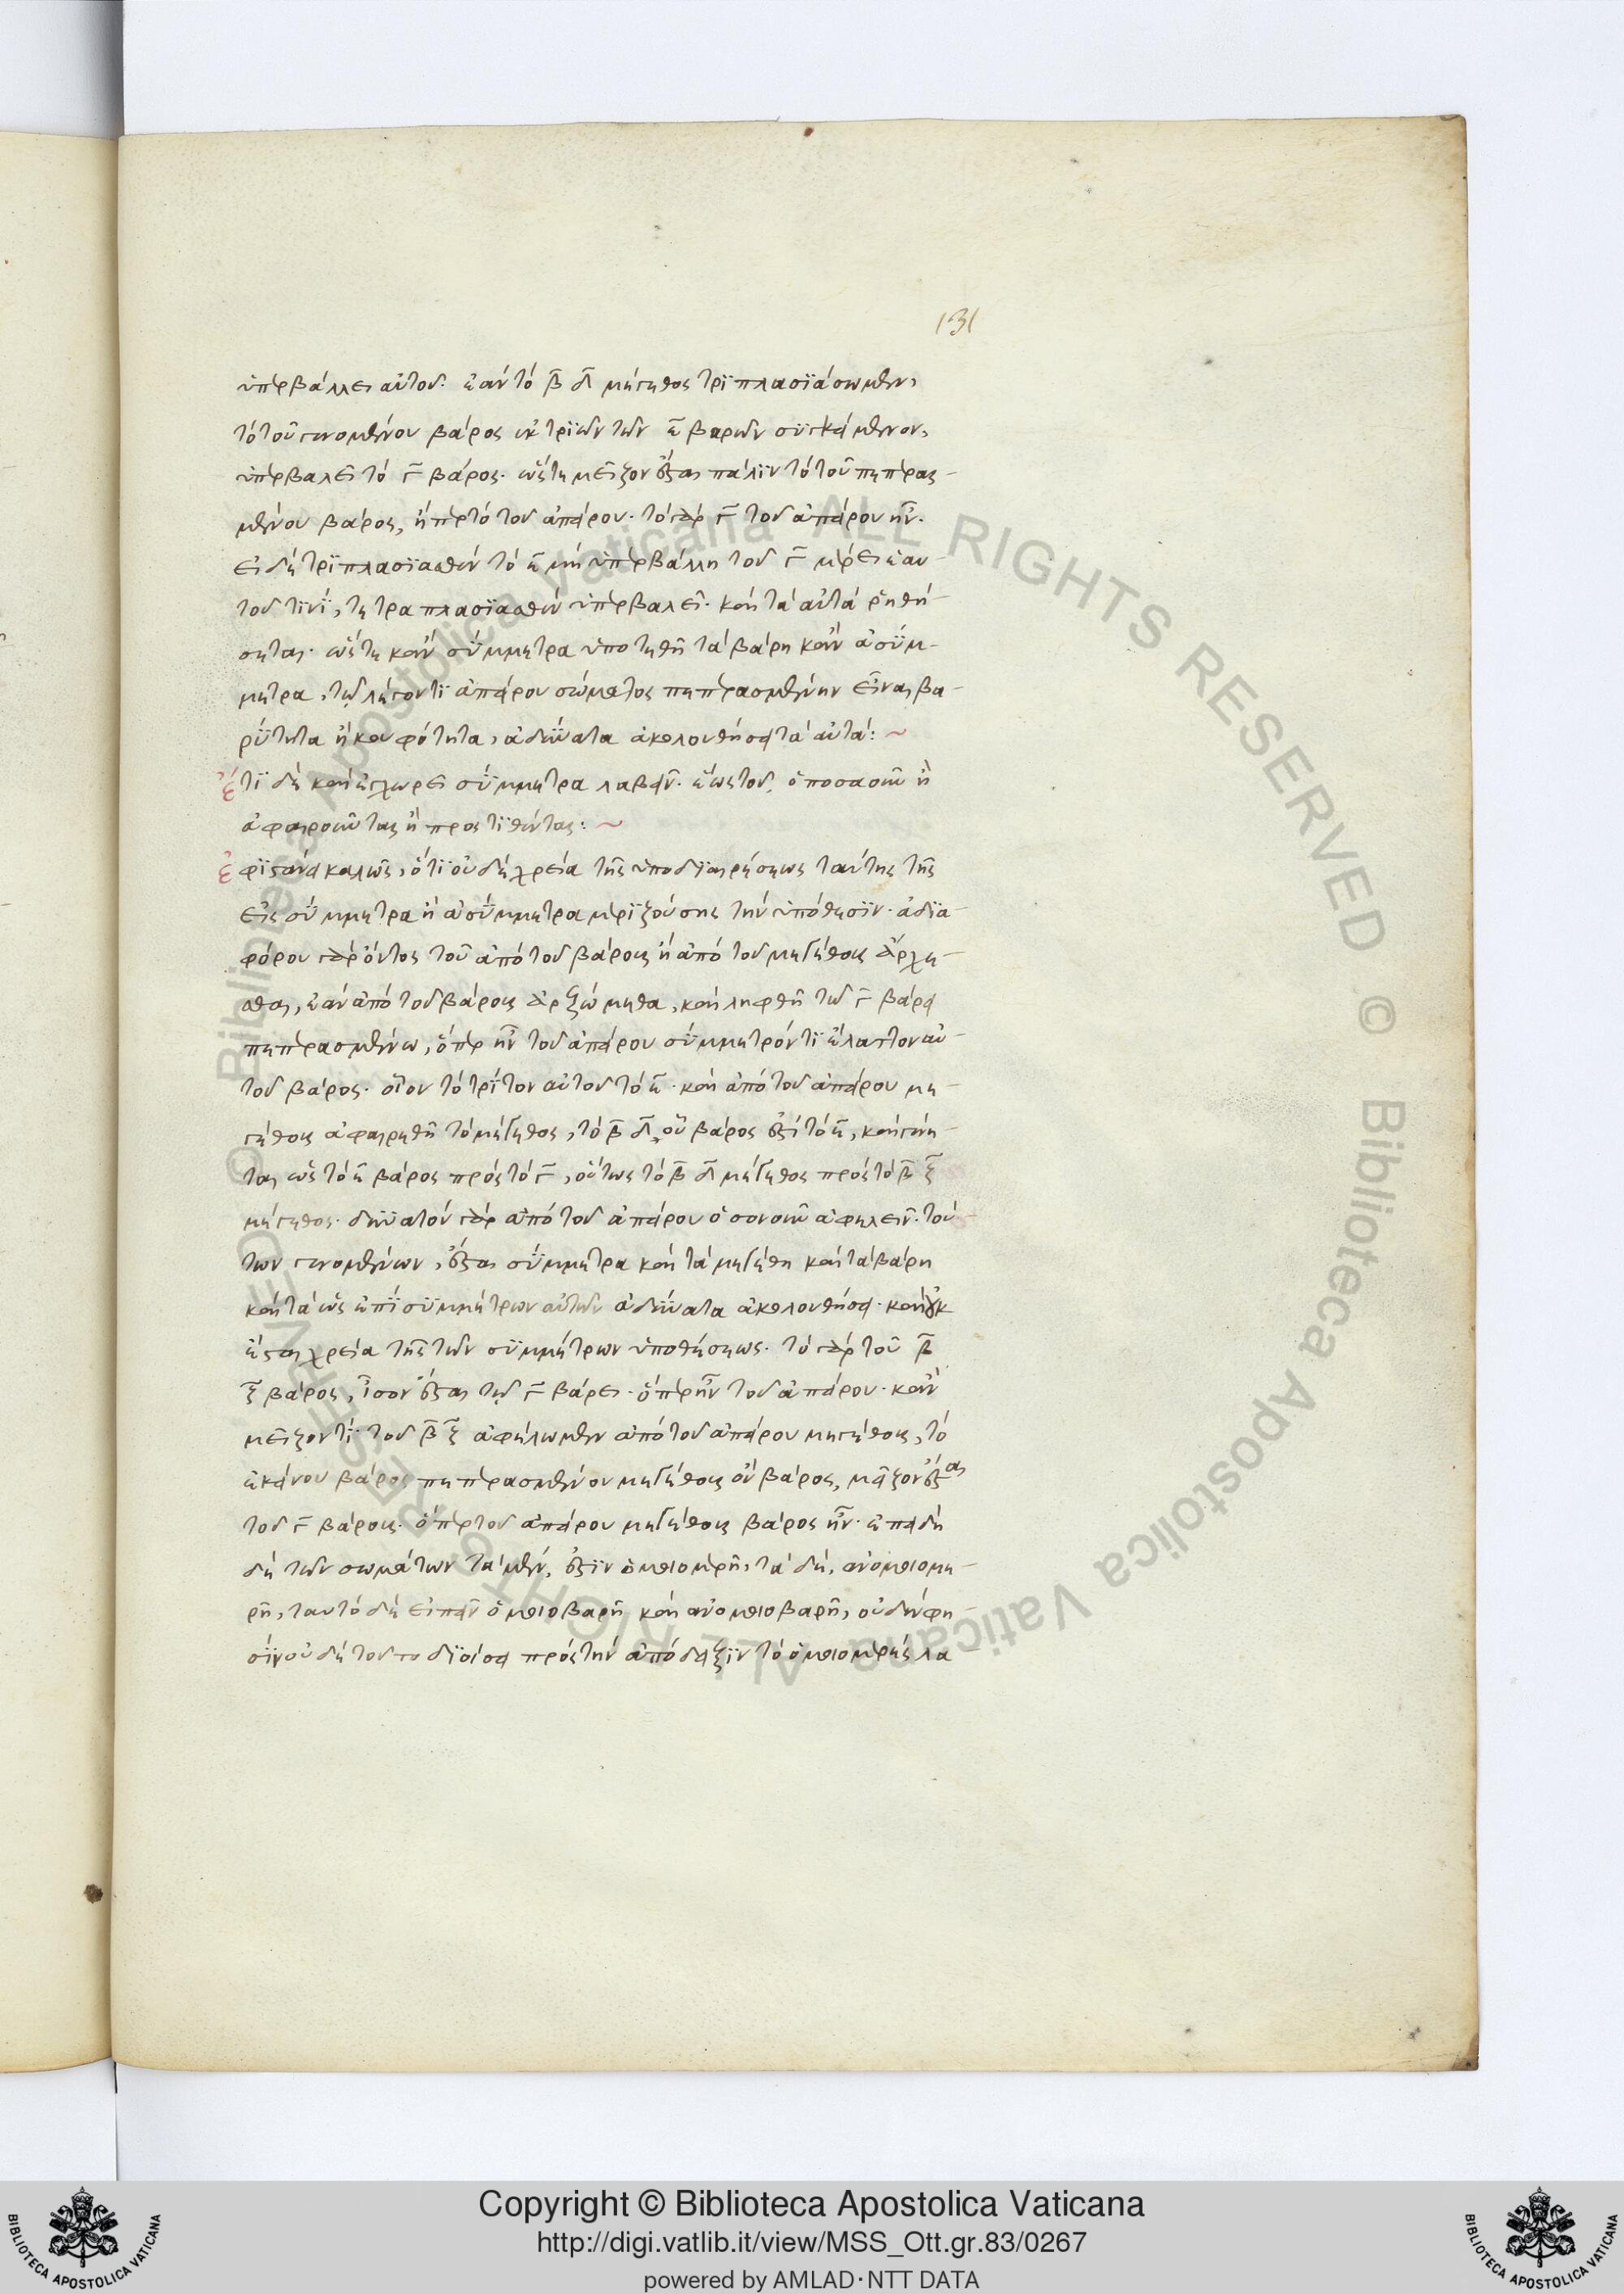 131
ὑπερβάλλει αὐτοῦ. ἐὰν τὸ β̅ δ̅ μέγεθος τριπλασιάσωμεν,
τὸ τοῦ γενομένου βάρος ἐκ τριῶν τῶν ε̅ βαρῶν συγκείμενον,
ὑπερβαλεῖ τὸ γ̅ βάρος. ὥστε μεῖζον ἔσται πάλιν τὸ τοῦ πεπερασ-
μένου βάρος, ἤπερ τὸ τοῦ ἀπείρου. τὸ γὰρ γ̅ τοῦ ἀπείρου ἦν.
εἰ δὲ τριπλασιασθὲν τὸ ε̅ μὴ ὑπερβάλλη τοῦ γ̅ μέρει ἑαυ-
τοῦ τινί, τετραπλασιασθὲν ὑπερβαλεῖ. καὶ τὰ αὐτὰ ῥηθή-
σεται. ὥστε κἂν σύμμετρα ὑποτεθῆ τὰ βάρη κἂν ἀσύμ-
μετρα, τῷ λέγοντι ἀπείρου σώματος πεπερασμένην εἶναι βα-
ρύτητα ἢ κουφότητα, ἀδύνατα ἀκολουθήσει τὰ αὐτά: ~
ἔτι δὲ καὶ ἐγχωρεῖ σύμμετρα λαβεῖν. ἕως τοῦ, ὁποσασοῦν ἢ
ἀφαιροῦντας ἢ προςτιθέντας: ~
ἐφιστάνει καλῶς, ὅτι οὐδὲ χρεία τῆς ὑποδιαιρέσεως ταύτης τῆς
εἰς σύμμετρα ἢ ἀσύμμετρα μεριζούσης τὴν ὑπόθεσιν. ἀδια-
φόρου γὰρ ὄντος τοῦ ἀπὸ τοῦ βάρους ἢ ἀπὸ τοῦ μεγέθους ἄρχε-
σθαι, ἐὰν ἀπὸ τοῦ βάρους ἀρξώμεθα, καὶ ληφθῆ τῶ γ̅ βάρει
πεπερασμένω, ὅπερ ἦν τοῦ ἀπείρου σύμμετρόν τι ἔλαττον αὐ-
τοῦ βάρος. οἷον τὸ τρίτον αὐτοῦ τὸ ε̅. καὶ ἀπὸ τοῦ ἀπείρου με-
γέθους ἀφαιρεθῆ τὸ μέγεθος, τὸ β̅ δ̅, οὗ βάρος ἐστὶ τὸ ε̅, καὶ γένη-
ται ὡς τὸ ε̅ βάρος πρὸς τὸ γ̅, οὕτως τὸ β̅ δ̅ μέγεθος πρὸς τὸ β̅ ξ̅
μέγεθος. δυνατὸν γὰρ ἀπὸ τοῦ ἀπείρου ὁσονοῦν ἀφελεῖν. τού-
των γενομένων, ἔσται σύμμετρα καὶ τὰ μεγέθη καὶ τὰ βάρη
καὶ τὰ ὡς ἐπὶ συμμέτρων αὐτῶν ἀδύνατα ἀκολουθήσει. καὶ οὐκ
ἔσται χρεία τῆς τῶν συμμέτρων ὑποθέσεως. τὸ γὰρ τοῦ β̅
ξ̅ βάρος, ἴσον ἔσται τῷ γ̅ βάρει. ὅπερ ἦν τοῦ ἀπείρου. κἂν
μεῖζον τὶ τοῦ β̅ ξ̅ ἀφέλωμεν ἀπὸ τοῦ ἀπείρου μεγέθους, τὸ
ἐκείνου βάρος πεπερασμένον μεγέθους ὂν βάρος, μεῖζον ἔσται
τοῦ γ̅ βάρους. ὅπερ τοῦ ἀπείρου μεγέθους βάρος ἦν. ἐπειδὴ
δὲ τῶν σωμάτων τὰ μὲν, ἐστὶν ὁμοιομερῆ, τὰ δὲ, ἀνομοιομε-
ρῆ, ταυτὸ δὲ εἰπεῖν ὁμοιοβαρῆ καὶ ἀνομοιοβαρῆ, οὐδὲν φη-
σὶν οὐδὲ τοῦτο διοίσει πρὸς τὴν ἀπόδειξιν τὸ ὁμοιομερὲς λα
Copyright © Biblioteca Apostolica Vaticana
http://digi.vatlib.it/view/MSS_Ott.gr.83/0267
powered by AMLAD·NTT DATA
BIBLIOTECA APOSTOLICA VATICANA
BIBLIOTECA APOSTOLICA VATICANA
© Biblioteca Apostolica Vaticana ALL RIGHTS RESERVED © Biblioteca Apostolica Vaticana ALL RIGHTS RESERVED